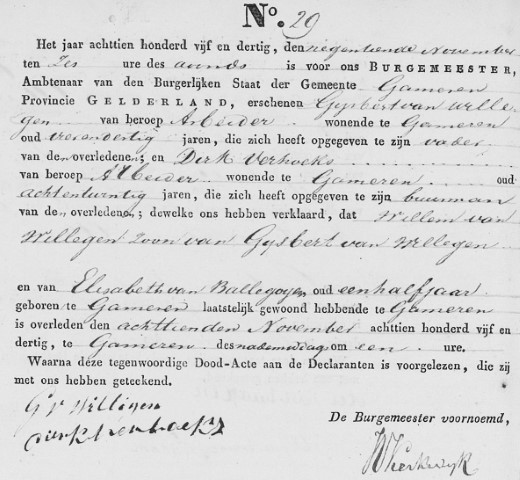 No. 29
Het jaar achttien honderd vijf en dertig, den negentiende November
ten zes ure des avonds is voor ons BURGEMEESTER,
Ambtenaar van den Burgerlijken Staat der Gemeente Gameren
Provincie GELDERLAND, erschenen Gysbert van Wille
gen van beroep Arbeider wonende te Gameren
oud jaren, die zich heeft opgegeven te zijn vader
van den overledenen; en Dirk Verhoeks
van beroep Arbeider wonende te Gameren oud
achtentwintig jaren, die zich heeft opgegeven te zijn buurman
van den overledenen; dewelke ons hebben verklaard, dat Willem van
Willegen Zoon van Gysbert van Willegen
en van Elisabeth van Ballegoyen oud een half jaar
geboren te Gameren laatstelijk gewoond hebbende te Gameren
is overleden den achttienden November achttien honderd vijf en
dertig, te Gameren des nademiddag om een ure.
Waarna deze tegenwoordige Dood-Acte aan de Declaranten is voorgelezen, die zij
met ons hebben geteekend.
G v Willigen
De Burgemeester voornoemd,